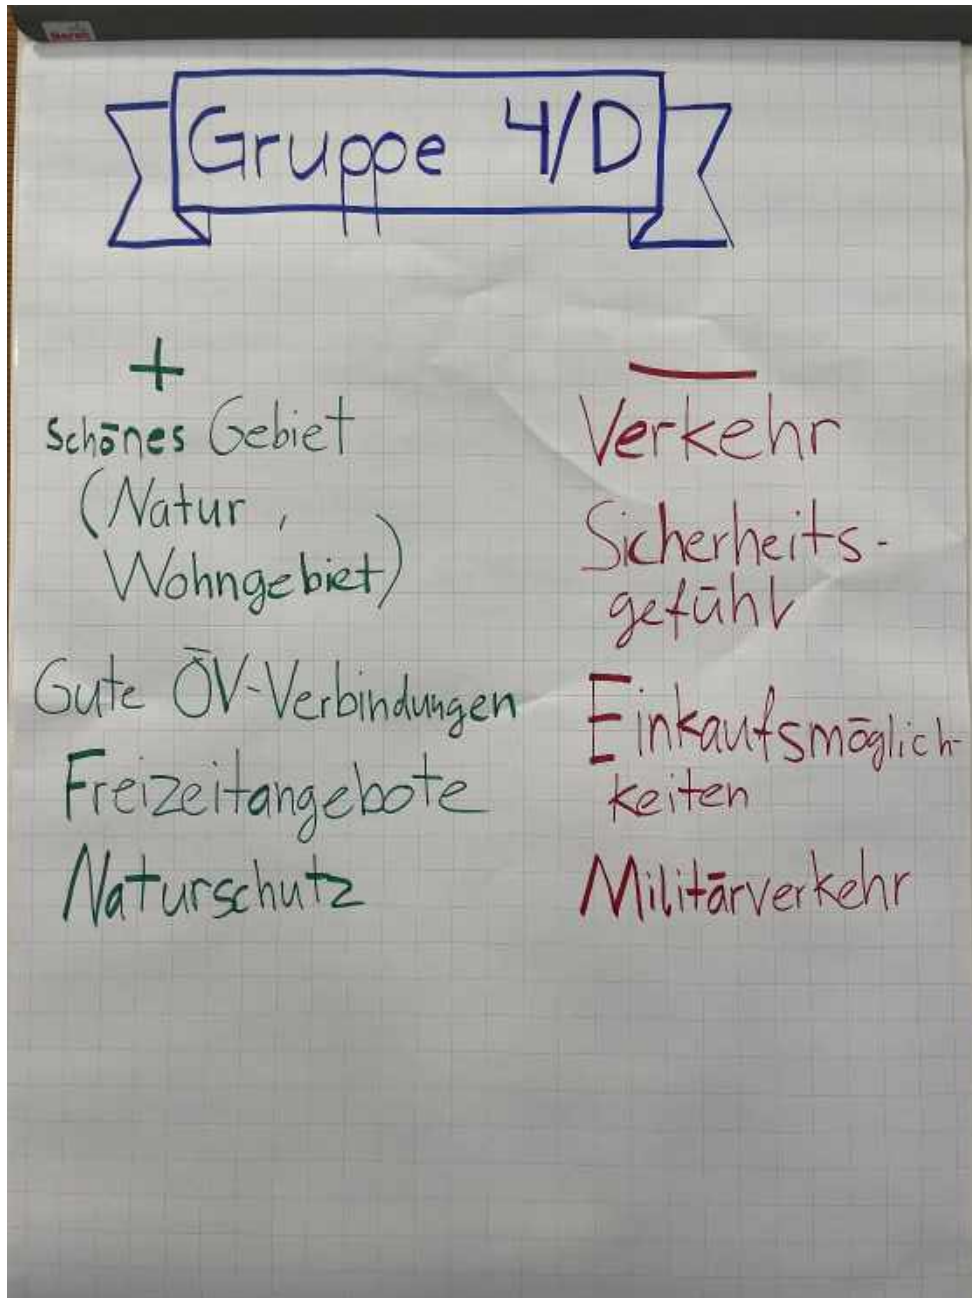 Gruppe 4/D
+
Schönes Gebiet
(Natur,
Wohngebiet)
Gute ÖV-Verbindungen
Freizeitangebote
Naturschutz
—
Verkehr
Sicherheits-
gefühl
Einkaufsmöglich-
keiten
Militärverkehr